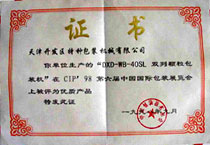 证书
天津开发区特种包装机械有限公司
你单位生产的“DXD-WB-40SL 双列颗粒包
装机”在 CIP'98 第六届中国国际包装展览会
上被评为优质产品
特发此证